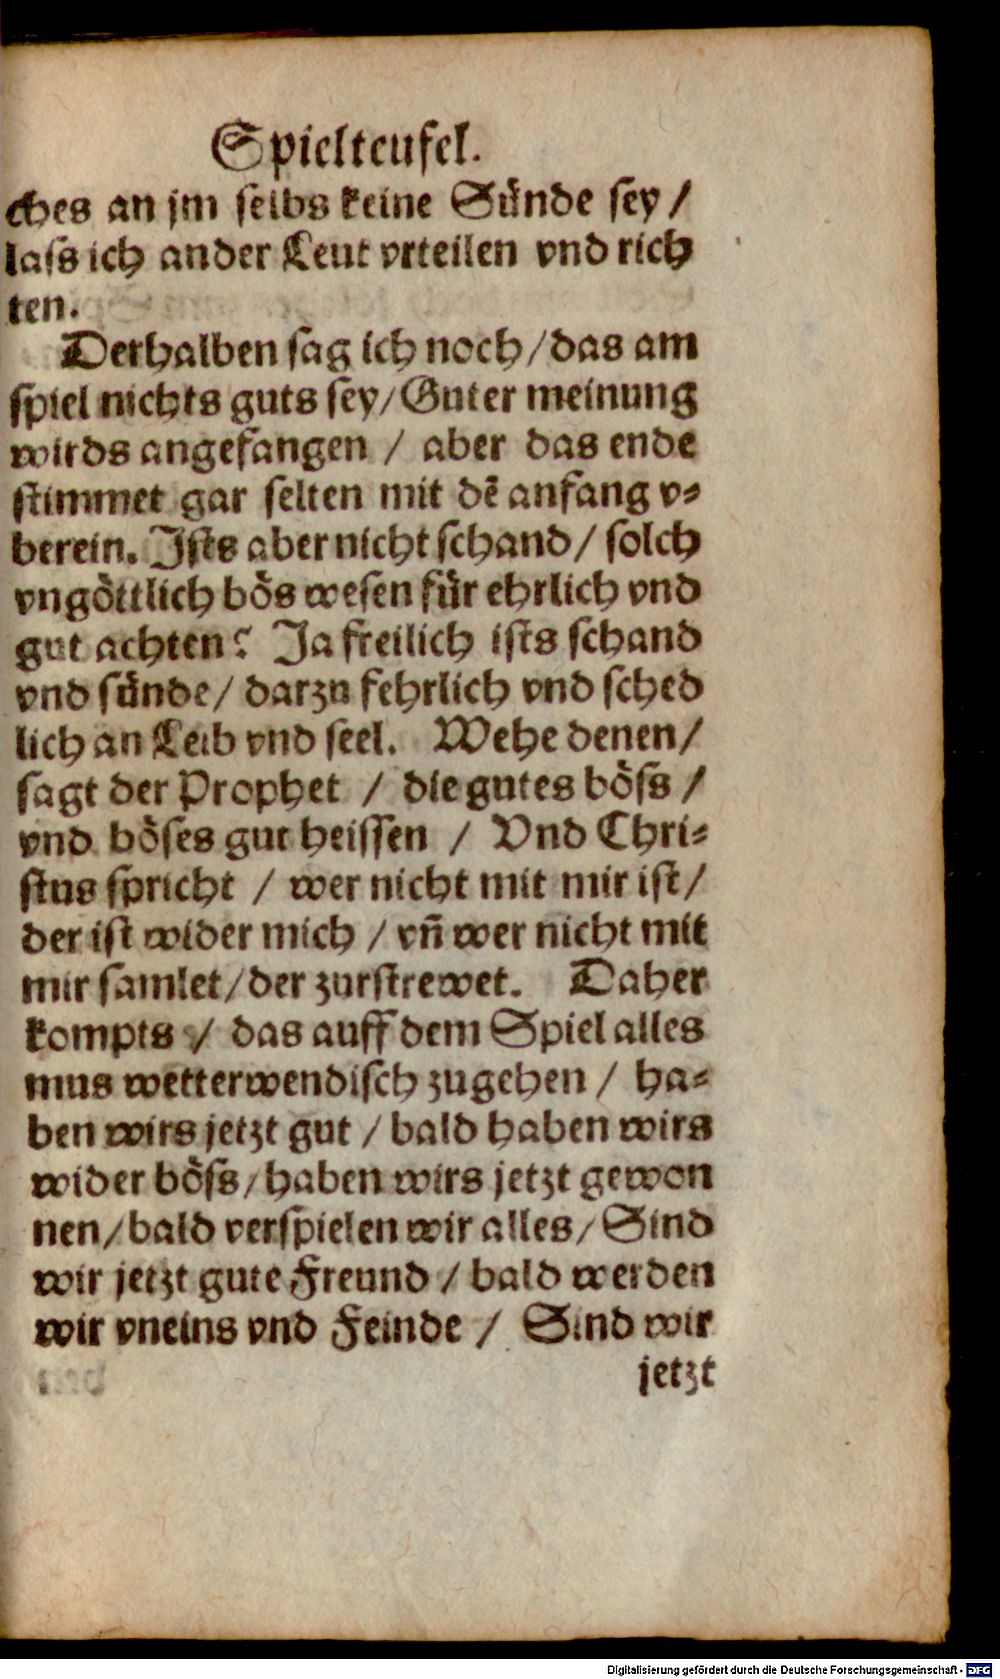 Spielteufel.
ches an jm selbs keine Sünde sey /
lass ich ander Leut vrteilen vnd rich
ten.
Derhalben sag ich noch / das am
spiel nichts guts sey / Guter meinung
wirds angefangen / aber das ende
stimmet gar selten mit dē anfang v⸗
berein. Ists aber nicht schand / solch
vngöttlich bös wesen für ehrlich vnd
gut achten? Ja freilich ists schand
vnd sünde / darzu fehrlich vnd sched
lich an Leib vnd seel. Wehe denen /
sagt der Prophet / die gutes böss /
vnd böses gut heissen / Vnd Chri⸗
stus spricht / wer nicht mit mir ist /
der ist wider mich / vñ wer nicht mit
mir samlet / der zurstrewet. Daher
kompts / das auff dem Spiel alles
mus wetterwendisch zugehen / ha⸗
ben wirs jetzt gut / bald haben wirs
wider böss / haben wirs jetzt gewon
nen / bald verspielen wir alles / Sind
wir jetzt gute Freund / bald werden
wir vneins vnd Feinde / Sind wir
jetzt
Digitalisierung gefördert durch die Deutsche Forschungsgemeinschaft - DFG